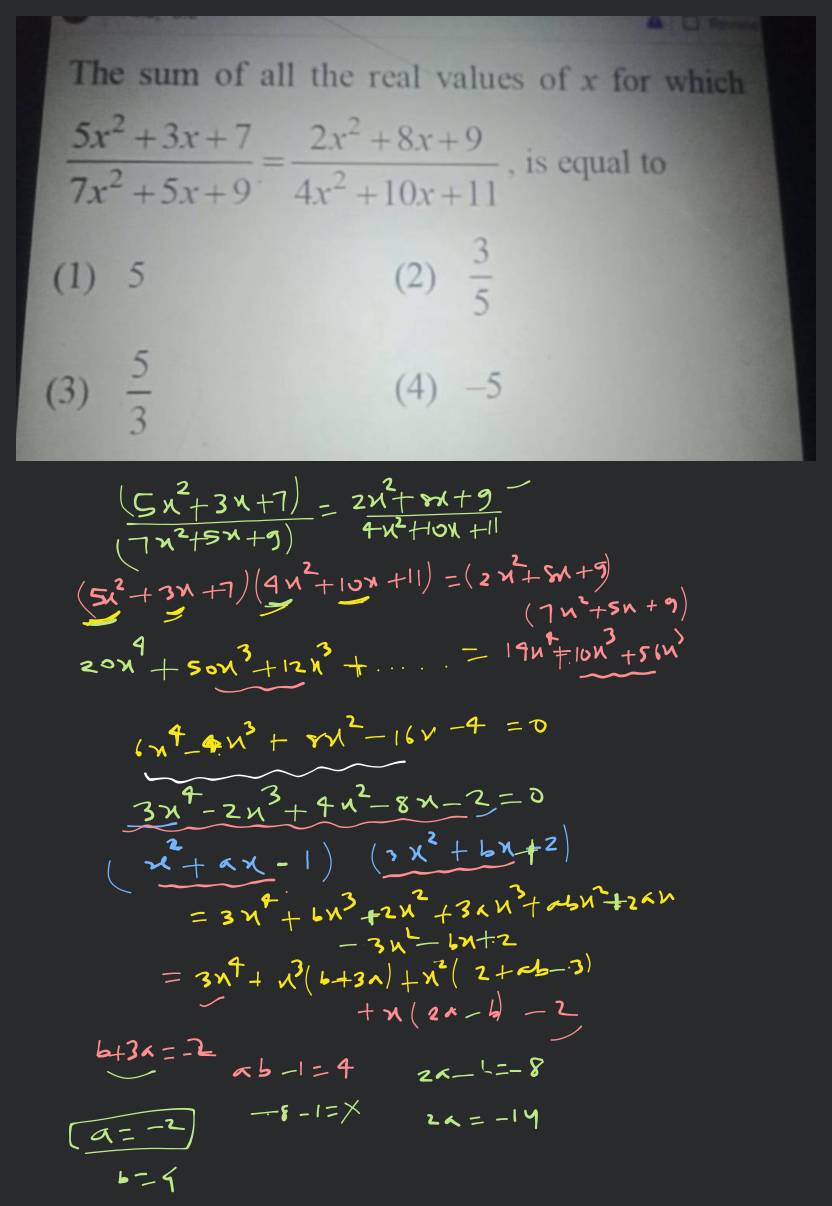 The sum of all the real values of x for which
\frac{5x^2+3x+7}{7x^2+5x+9} = \frac{2x^2+8x+9}{4x^2+10x+11}, is equal to
(1) 5 (2) \frac{3}{5}
(3) \frac{5}{3} (4) –5
\frac{(5x^2+3x+7)}{(7x^2+5x+9)} = \frac{2x^2+8x+9}{4x^2+10x+11}
(5x^2+3x+7)(4x^2+10x+11) = (2x^2+8x+9)
(7x^2+5x+9)
20x^4 + 50x^3+12x^3 + ..... = 14x^4+10x^3+56x^3
6x^4-4x^3+8x^2-16x-4 = 0
3x^4-2x^3+4x^2-8x-2=0
(x^2+ax-1) (3x^2+bx+2)
= 3x^4+bx^3+2x^2+3ax^3+abx^2+2ax
-3x^2-bx+2
= 3x^4+x^3(b+3a)+x^2(2+ab-3)
+x(2a-b) -2
b+3a=-2 ab-1=4 2a-b=-8
-8-1=X 2a=-14
a=-2
b=4